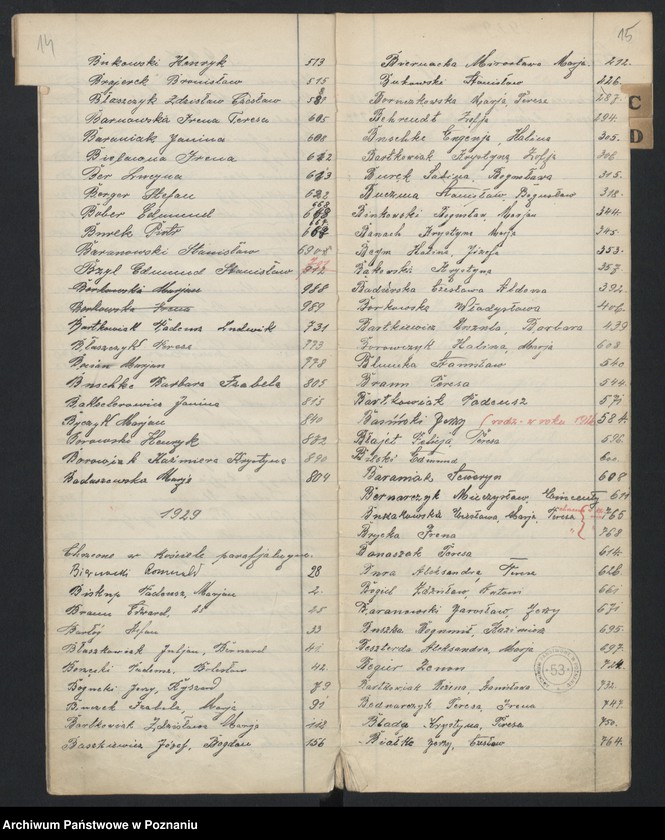 14
Bukowski Henryk 513
Brzjerck Bronisław 515
Błaszczyk Zdzisław Czesław
Barnowska Irena Teresa 605
Baraniak Janina 608
Bielawna Irena 612
Ber Lucyna 613
Berger Stefan 622
Bober Edmund
Burek Piotr
Baranowski Stanisław
Bzyl Edmund Stanisław
Borkowski Marjan 988
Borkowska Irena 989
Bartkowiak Tadeusz Ludwik 731
Błaszczyk Teresa 773
Marjan 778
Buschke Barbara Izabela 805
Bakselerowicz Janina 815
Byczyk Marjan 840
Borowski Henryk 882
Borowjak Kazimiera Krystyna 890
Baduszewska Marja 804
1929
Chrzcone w kościele parafjalnym.
Biernacki Romuald 28
Biskup Tadeusz, Marjan 2.
Braun Edward, 25
Bartoj Stefan 33
Błaszkowiak Juljan, Bernard 41
Tadeusz, Bolesław 42.
Bojnecki Jerzy, Ryszard 79
Banach Izabela, Marja 91
Bartkowiak Zdzisława Marja 112
Baszkiewicz Józef, Bogdan 156
15
Biernacka Mirosława Marja. 212.
Bukowski Stanisław 226.
Borniakowska Marja, Teresa 287.
Behrendt Zofja 294.
Buschke Eugenja, Halina 305.
Bartkowiak Krystyna Zofja 306.
Burek Sabina, Bogusława 315.
Buczma Stanisław, Bogusław 318.
Binkowski Bogusław, Marjan 344.
Banach Krystyna Marja 345.
Baym Halina, Józefa 353.
Bakowski Krystyna 357
Badurska Czesława Aldona 392
Borkowska Władysława 406.
Bartkiewicz Urszula, Barbara 439
Borowczyk Halina, Marja 503
Blumka Stanisław 540
Brann Teresa 544.
Bartkowiak Tadeusz 571
Basiński Jerzy (rodz. w roku 584.
Błajet Felicja, Teresa 596.
Bilski Edmund 600.
Baraniak Seweryn 608
Bernarczyk Mieczysław, Wincenty 611
Brzakowska Czesława, Marja, Teresa 765
Brycka Irena 768
Banaszak Teresa 614.
Bura Aleksandra, Teresa 626.
Bogiel Zdzisław, Antoni 661
Baranowski Jarosław, Jerzy 671
Buszka Bogumił, Kazimierz 695.
Beszterda Aleksandra, Marja 697.
Begier Zenon 724.
Bartkowiak Bożena, Stanisława 732.
Bednarczyk Teresa, Irena 747.
Blada Krystyna, Teresa 750.
Białka Jerzy, Czesław 764.
C
D
53
Archiwum Państwowe w Poznaniu